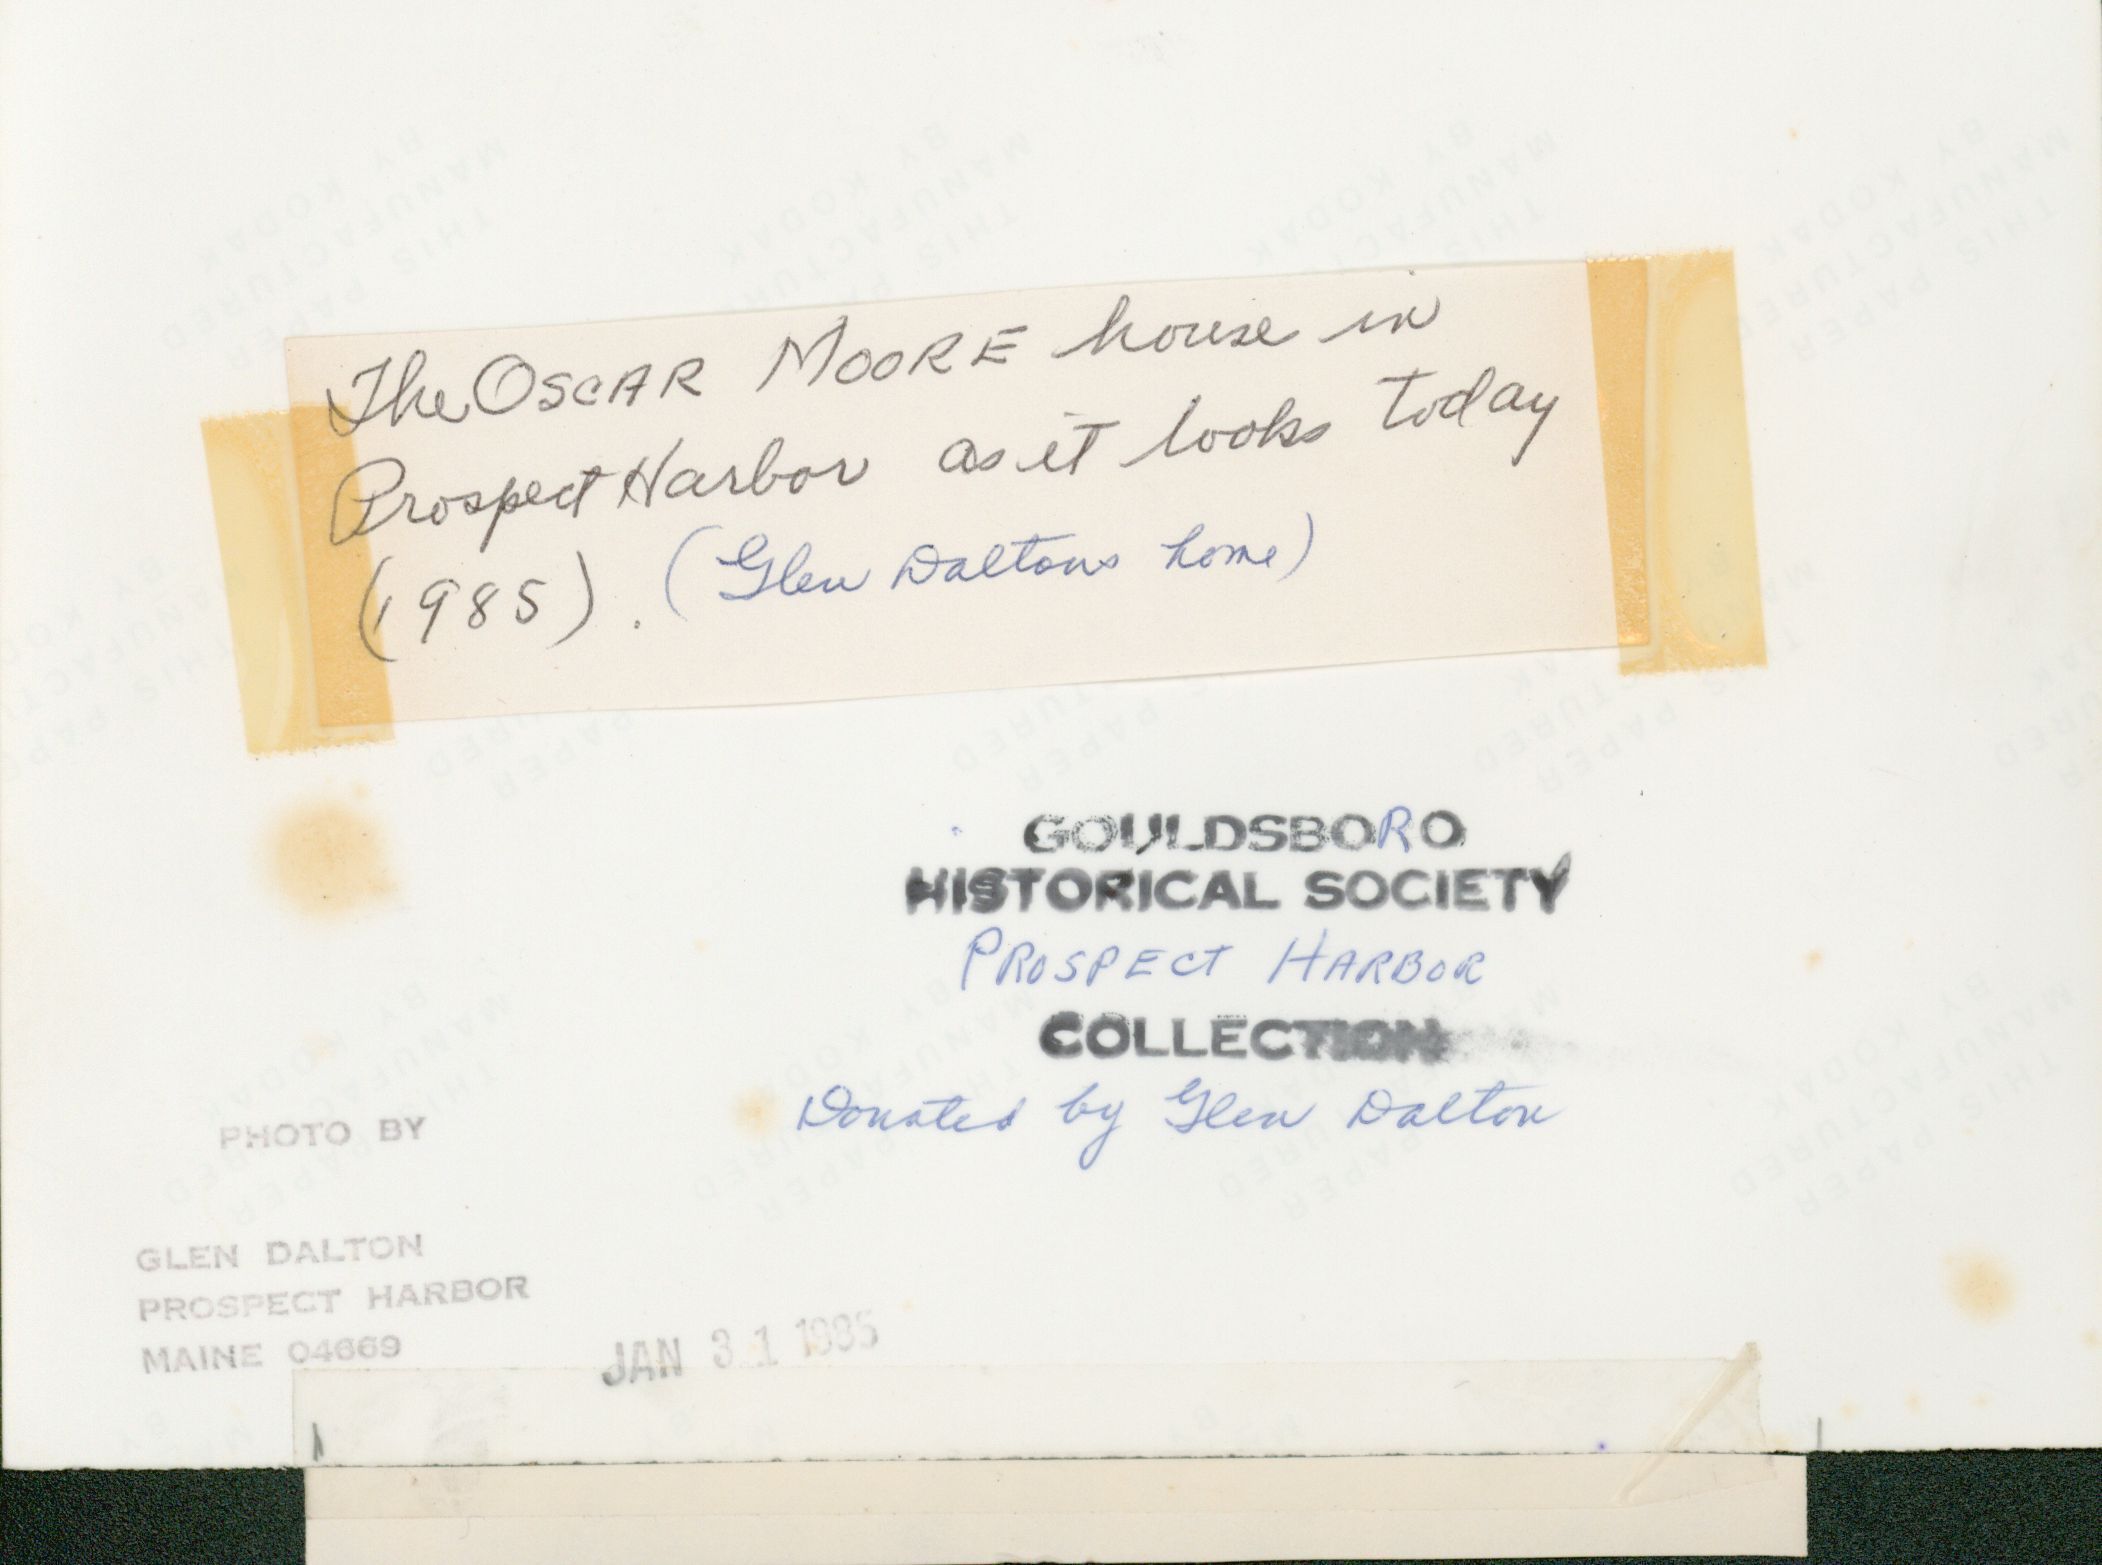 The OSCAR MOORE house in
Prospect Harbor as it looks today
(1985). (Glen Daltons home)
GOULDSBORO
HISTORICAL SOCIETY
PROSPECT HARBOR
COLLECTION
Donated by Glen Dalton
PHOTO BY
GLEN DALTON
PROSPECT HARBOR
MAINE 04669
JAN 31 1985
THIS PAPER
MANUFACTURED
BY KODAK